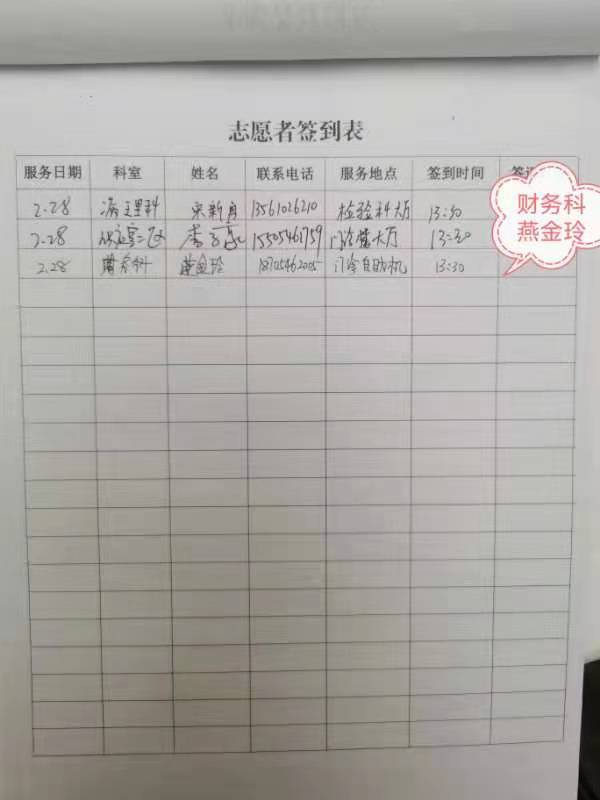 志愿者签到表
服务日期 科室 姓名 联系电话 服务地点 签到时间 签
财务科
燕金玲
2.28 病理科 宋新 13561026210 检验科大厅 13:30
2.28 15505461759 门诊 大厅 13:30
2.28 财务科 燕金玲 18705462005 门诊自助机 13:30